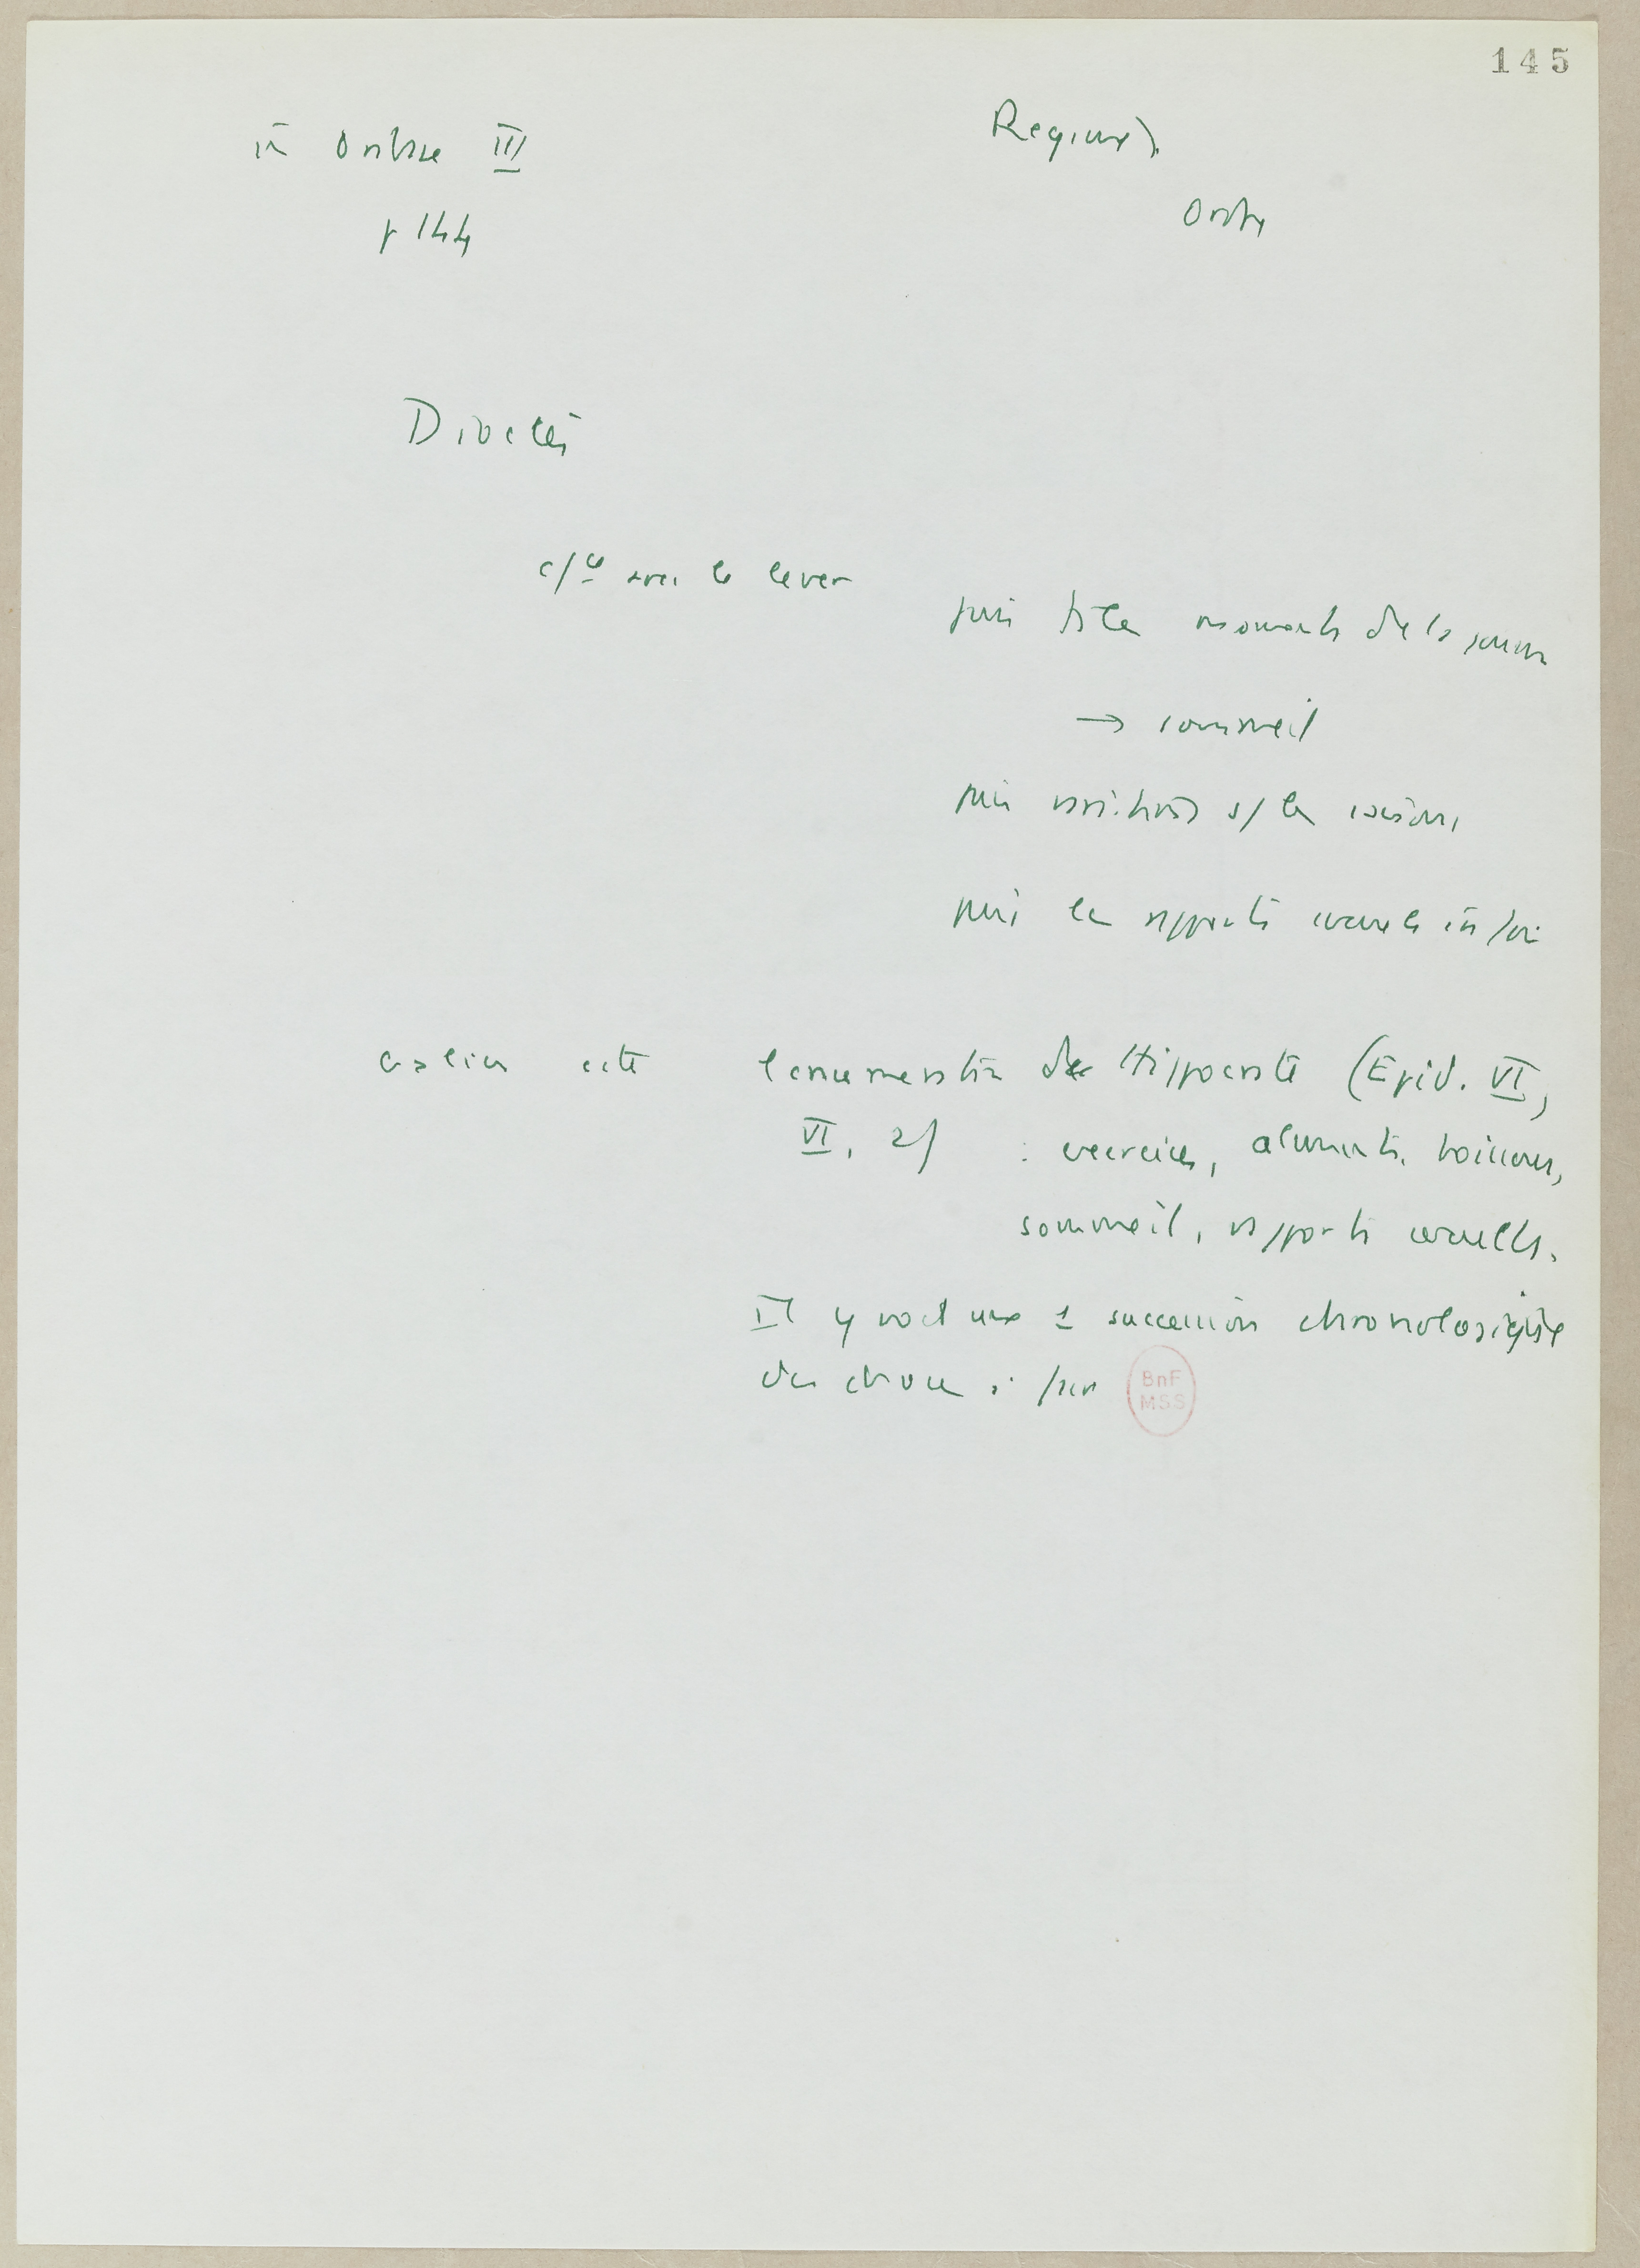 145
in Oribase III
p 144
Régime).
Dioclès
c/ce avec le lever
puis ts les moments de la journ
→ sommeil
puis variations s/ les saisons
puis les rapports sexuels
Galien cite l'enumération de Hippocrate (Epid. VI,
VI, 2) : exercices, aliments, boissons,
sommeil, rapports sexuels.
Il y voit une 1 succession chronologique
des choses à
BnF
MSS